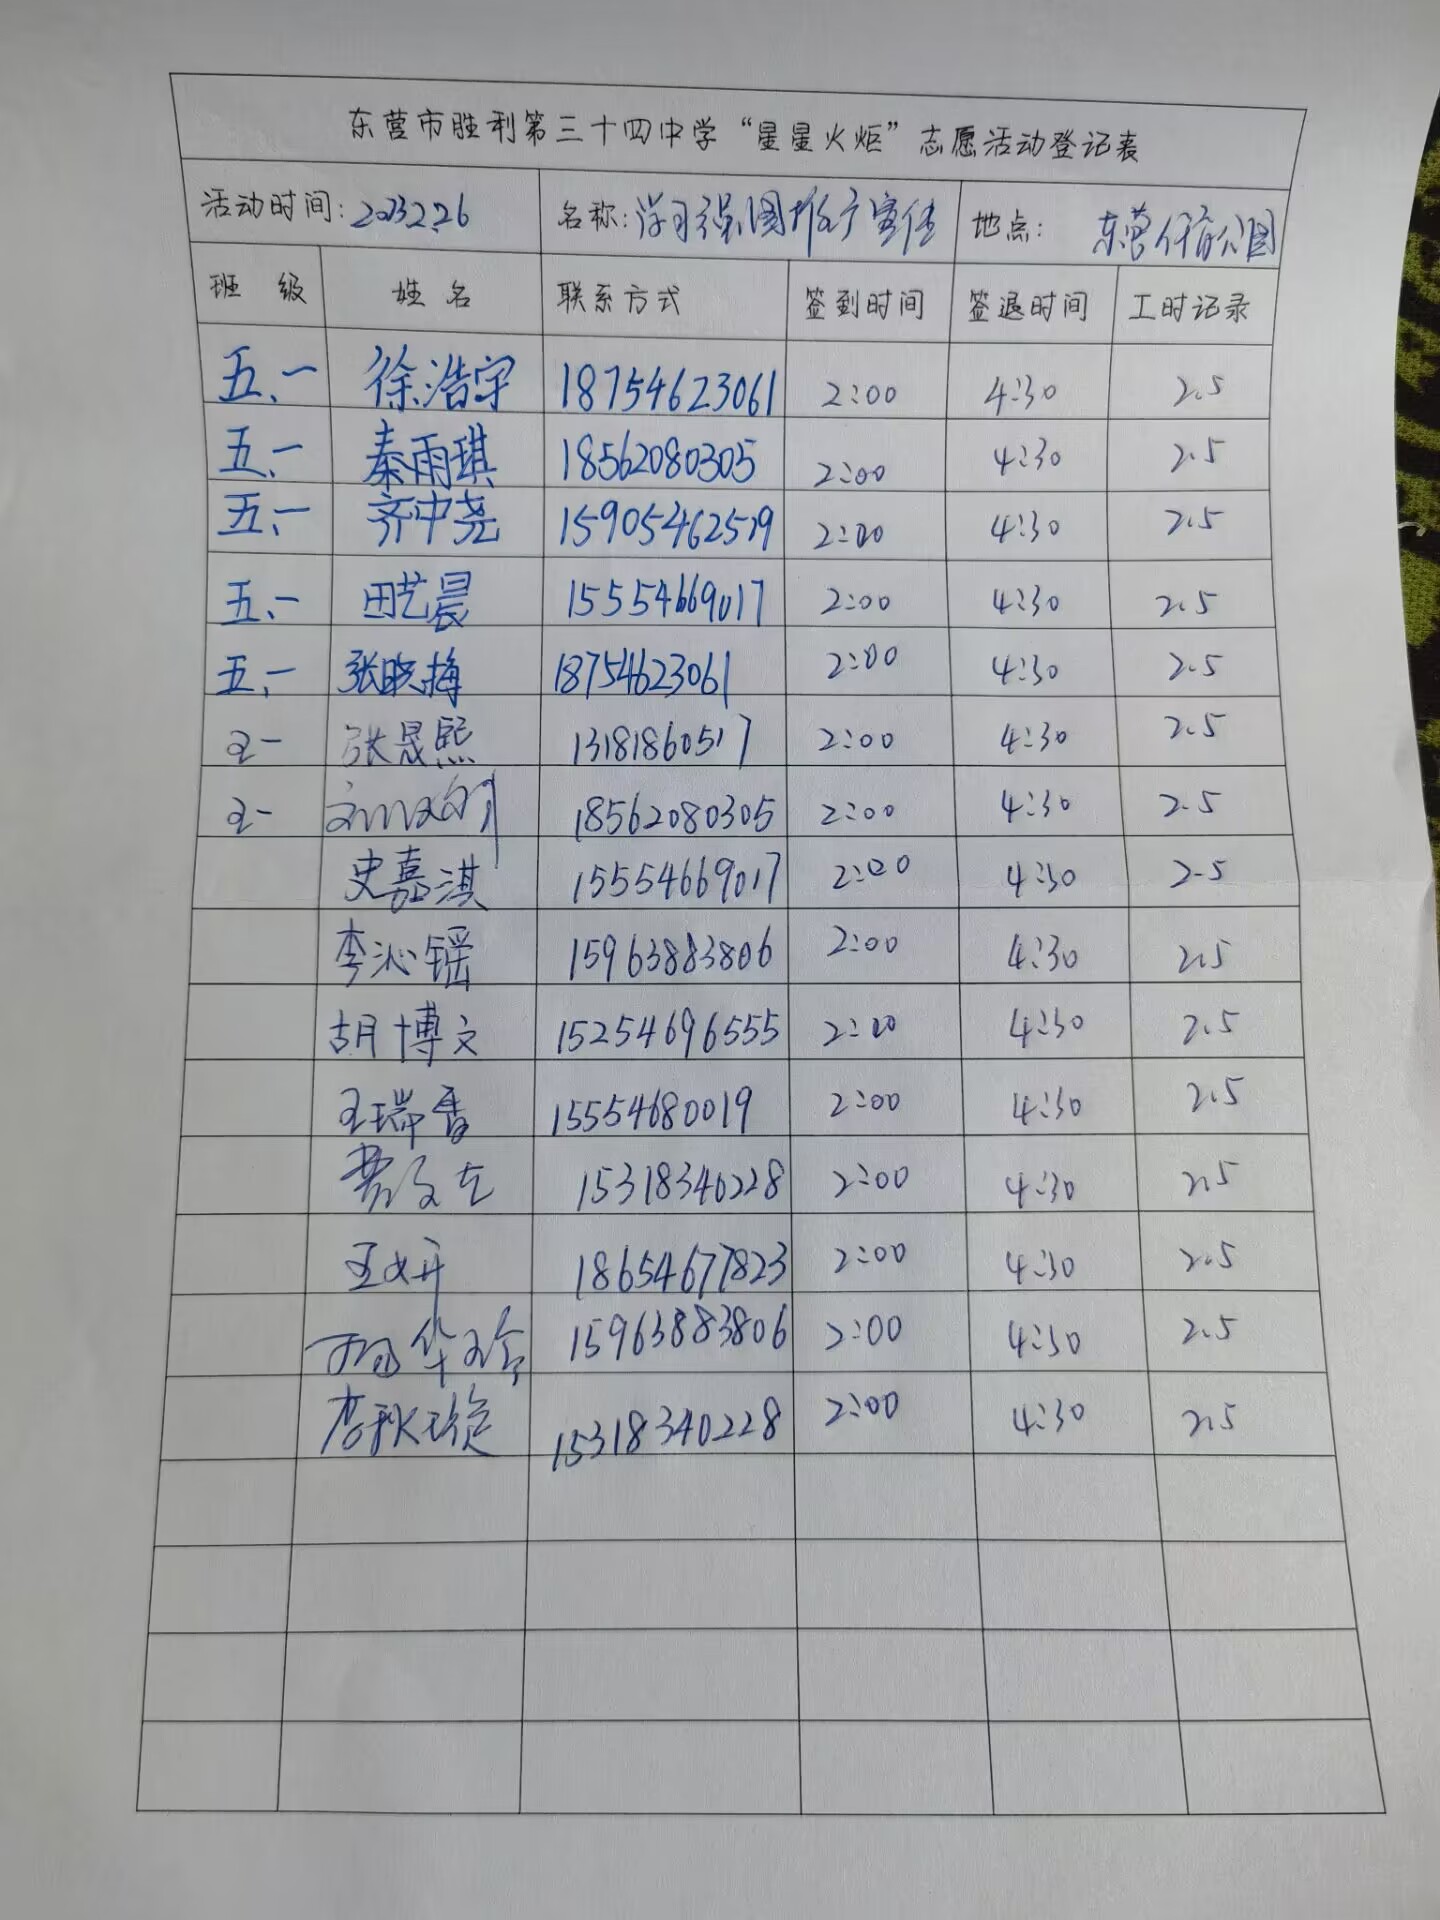 东营市胜利第三十四中学“星星火炬”志愿活动登记表
活动时间: 2023.2.26 名称: 学习强国推广宣传 地点: 东营体育公园
班 级 姓 名 联系方式 签到时间 签退时间 工时记录
五、一 徐浩宇 18754623061 2:00 4:30 2.5
五、一 秦雨琪 18562080305 2:00 4:30 2.5
五、一 齐中尧 15905462519 2:00 4:30 2.5
五、一 田艺晨 15554669017 2:00 4:30 2.5
五、一 张晓梅 18754623061 2:00 4:30 2.5
2一 张晟熙 13181860517 2:00 4:30 2.5
2一 18562080305 2:00 4:30 2.5
史嘉淇 15554669017 2:00 4:30 2.5
李沁镅 15963883806 2:00 4:30 2.5
胡博文 15254696555 2:00 4:30 2.5
王瑞香 15554680019 2:00 4:30 2.5
15318340228 2:00 4:30 2.5
王妍 18654677823 2:00 4:30 2.5
15963883806 2:00 4:30 2.5
李秋璇 15318340228 2:00 4:30 2.5